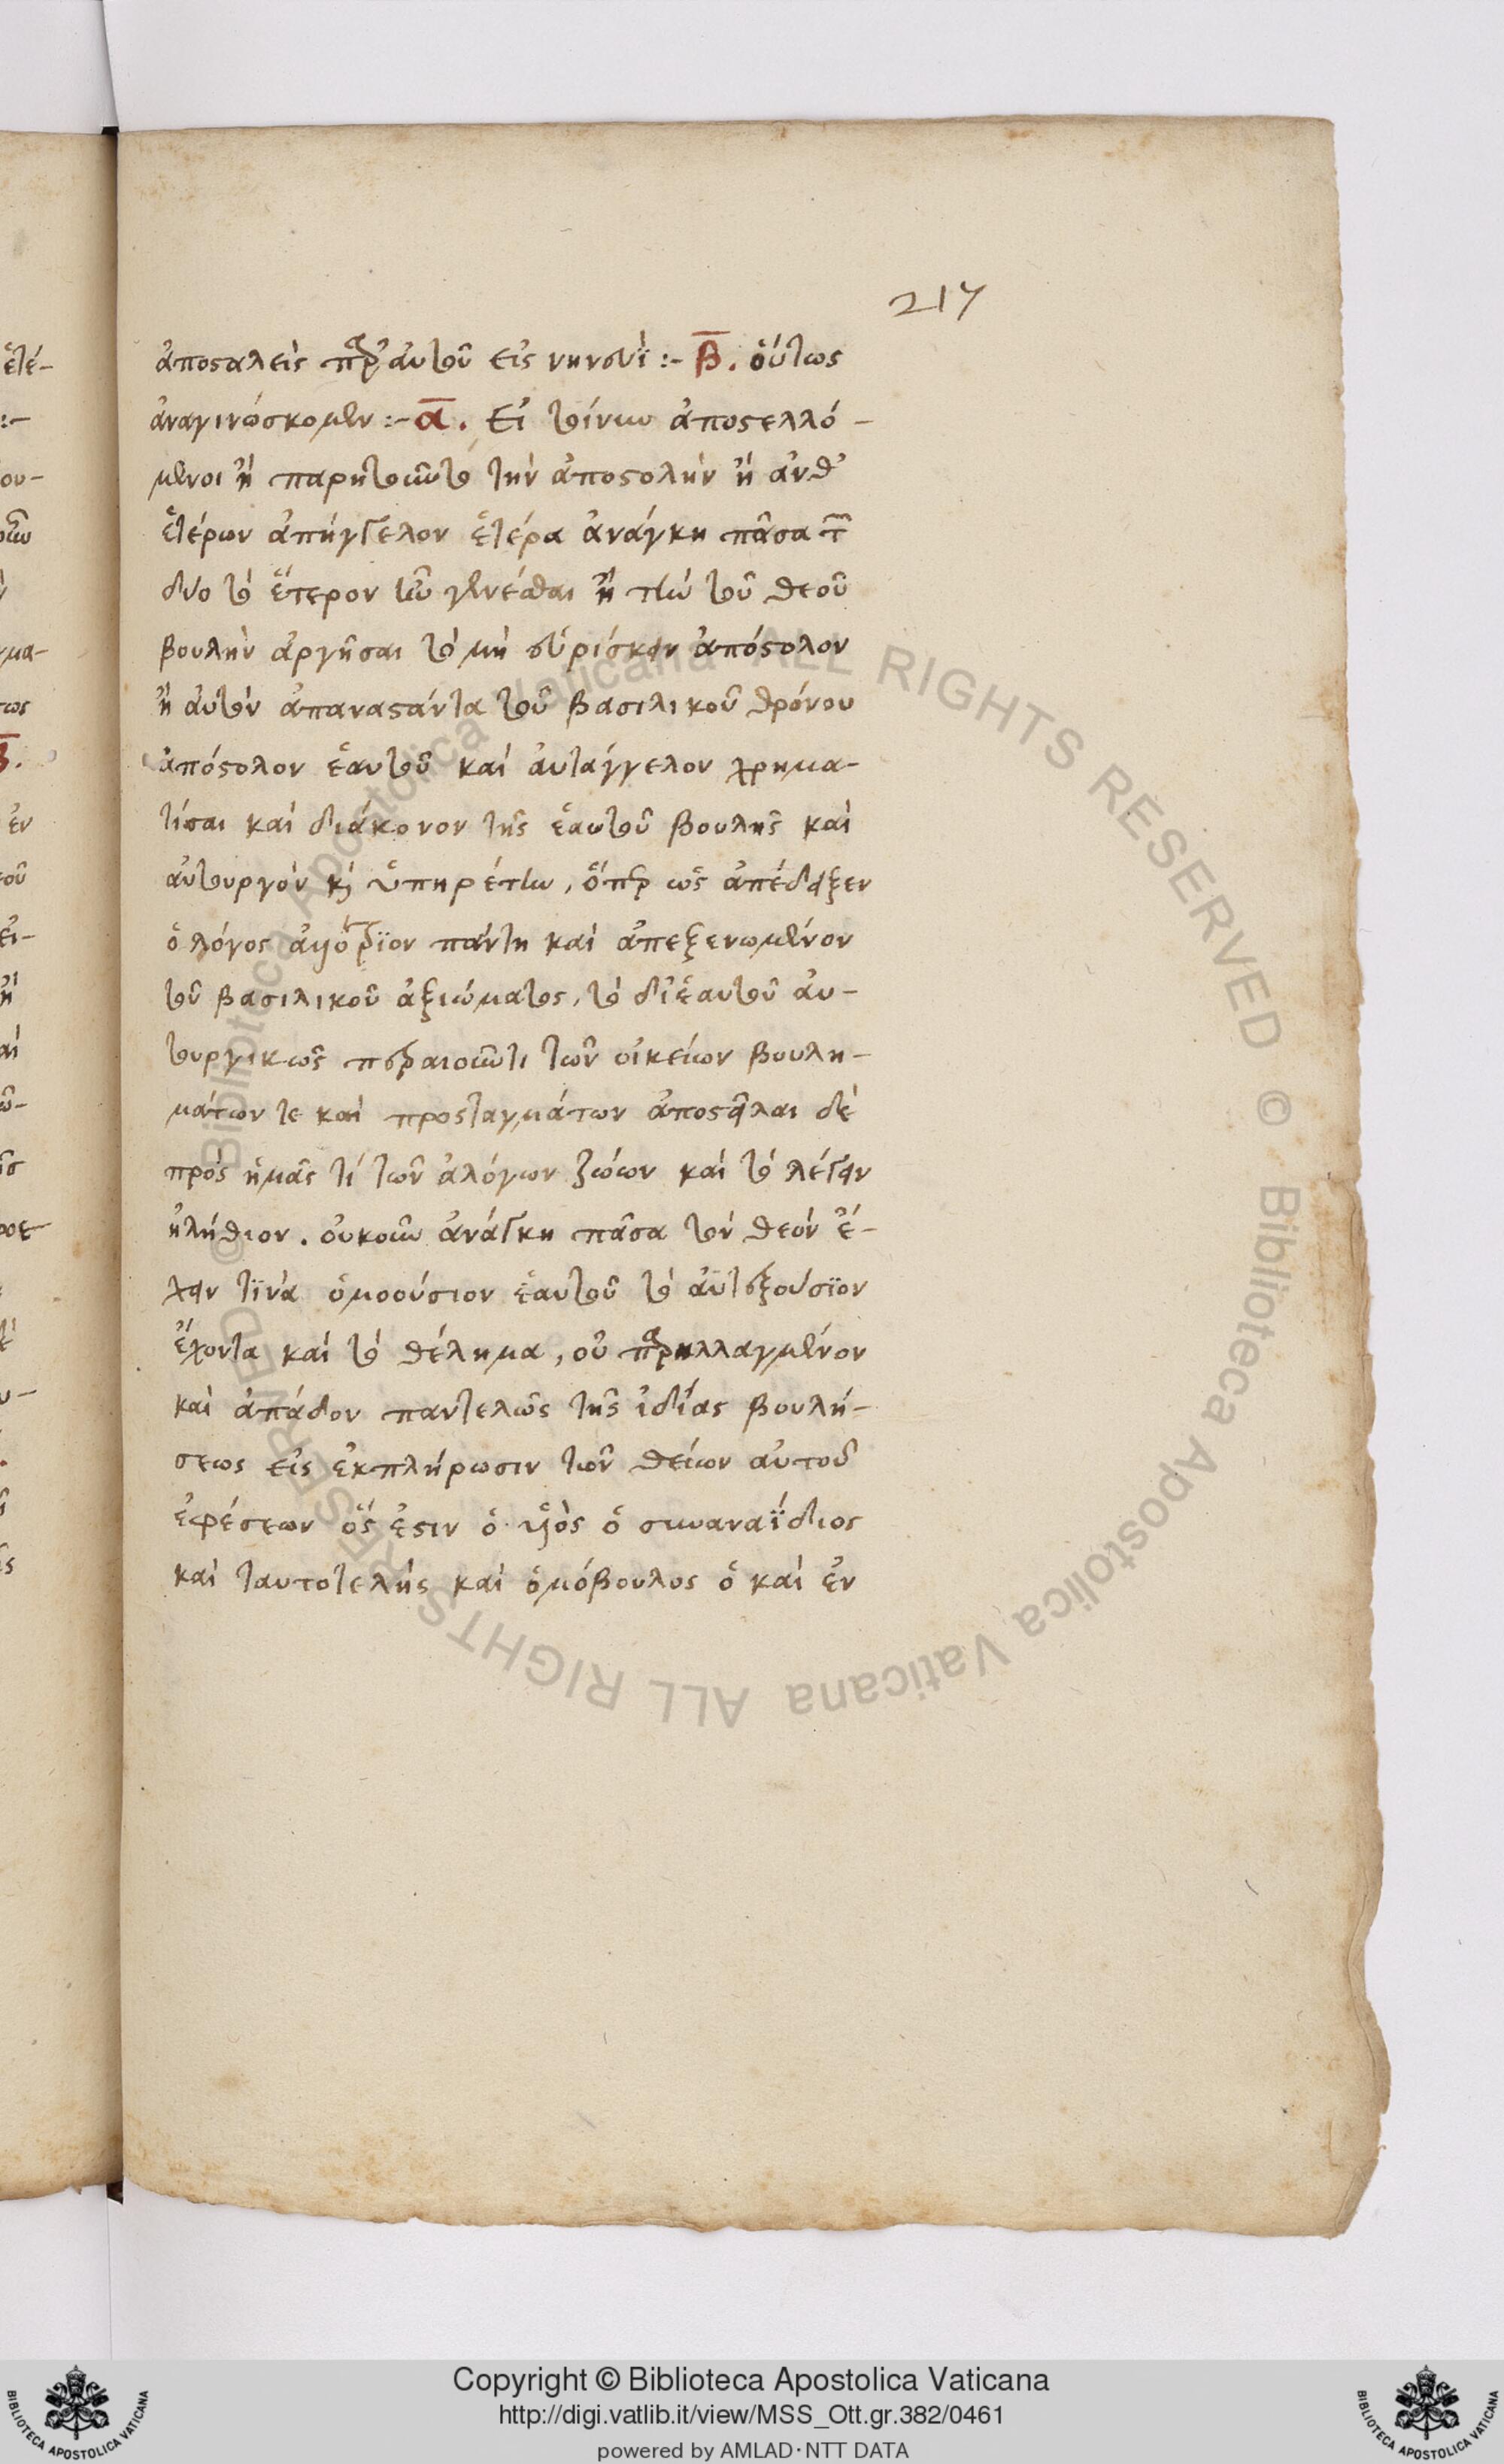 217
ἀποσταλεὶς παρ' αὐτοῦ εἰς νηνευΐ :- Β. οὕτως
ἀναγινώσκομεν :- α. Εἰ τοίνυν ἀποστελλό-
μενοι ἢ παρητοῦντο τὴν ἀποστολὴν ἢ ἀνθ'
ἑτέρων ἀπήγγελον ἑτέρα ἀνάγκη πᾶσα τῶν
δύο τὸ ἕτερον γενέσθαι ἢ τὴν τοῦ θεοῦ
βουλὴν ἀργῆσαι τὸ μὴ εὑρίσκειν ἀπόστολον
ἢ αὐτὸν ἀπαναστάντα τοῦ βασιλικοῦ θρόνου
ἀπόστολον ἑαυτοῦ καὶ αὐτάγγελον χρημα-
τίσαι καὶ διάκονον τῆς ἑαυτοῦ βουλῆς καὶ
αὐτουργὸν καὶ ὑπηρέτην, ὅπερ ὡς ἀπέδειξεν
ὁ λόγος πάντη καὶ ἀπεξενωμένον
τοῦ βασιλικοῦ ἀξιώματος, τὸ δι' ἑαυτοῦ αὐ-
τουργικῶς περαιοῦντι τῶν οἰκείων βουλη-
μάτων τε καὶ προσταγμάτων ἀποστεῖλαι δὲ
πρὸς ἡμᾶς τί τῶν ἀλόγων ζώων καὶ τὸ λέγειν
ἠλήθιον. οὐκοῦν ἀνάγκη πᾶσα τὸν θεὸν ἔ-
χειν τινὰ ὁμοούσιον ἑαυτοῦ τὸ αὐτεξούσϊον
ἔχοντα καὶ τὸ θέλημα, οὐ παρηλλαγμένον
καὶ ἀπάδον παντελῶς τῆς ἰδίας βουλή-
σεως εἰς ἐκπλήρωσιν τῶν θείων αὐτοῦ
ἐφέσεων ὅς ἐστιν ὁ υἱὸς ὁ συναναΐδιος
καὶ ταυτοτελὴς καὶ ὁμόβουλος ὁ καὶ ἐν
Biblioteca Apostolica Vaticana ALL RIGHTS RESERVED © Biblioteca Apostolica Vaticana ALL RIGHTS RESERVED ©
Copyright © Biblioteca Apostolica Vaticana
http://digi.vatlib.it/view/MSS_Ott.gr.382/0461
powered by AMLAD·NTT DATA
BIBLIOTECA APOSTOLICA VATICANA
BIBLIOTECA APOSTOLICA VATICANA